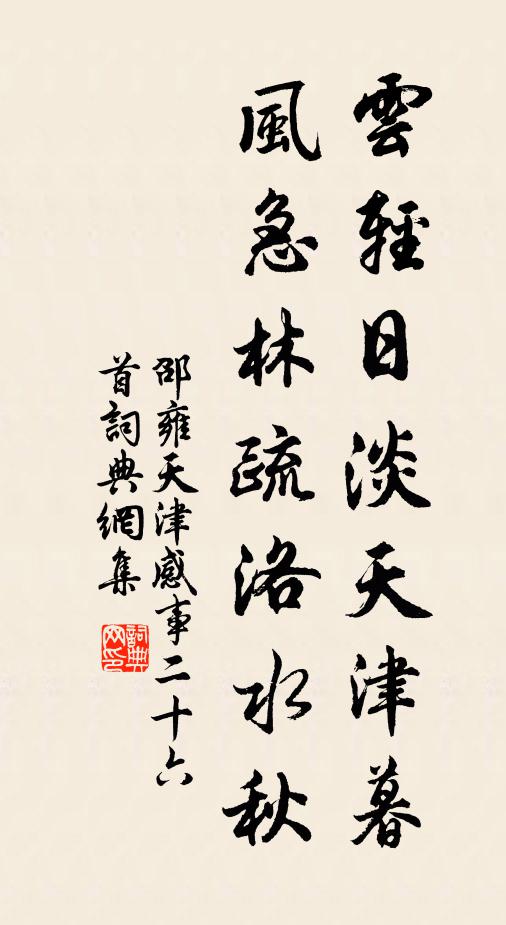 雲輕日淡天津暮
風急林疏洛水秋
邵雍天津感事二十六
首詞典網集
詞典网印